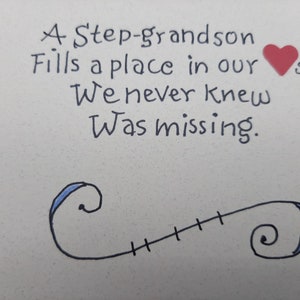 A Step-grandson
Fills a place in our ❤s
We never knew
Was missing.